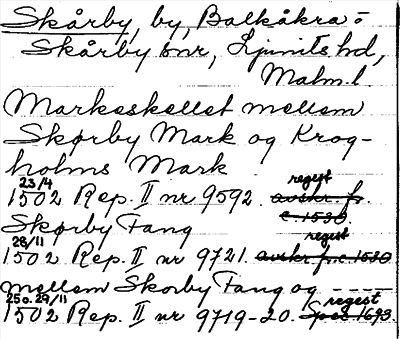 Skårby, by, Balkåkra o
Skårby snr, Ljunits hd,
Malm. l.
Markeskellet mellem
Skørby Mark og Krog-
holms Mark
23/4 regest
1502 Rep. II nr 9592. avskr. fr.
c. 1530.
Skørby Fang
28/11 regest
1502 Rep. II nr 9721. avskr. fr. c. 1530
mellem Skorby Fang og ----
25 o. 29/11 regest
1502 Rep. II nr 9719-20. 1693.